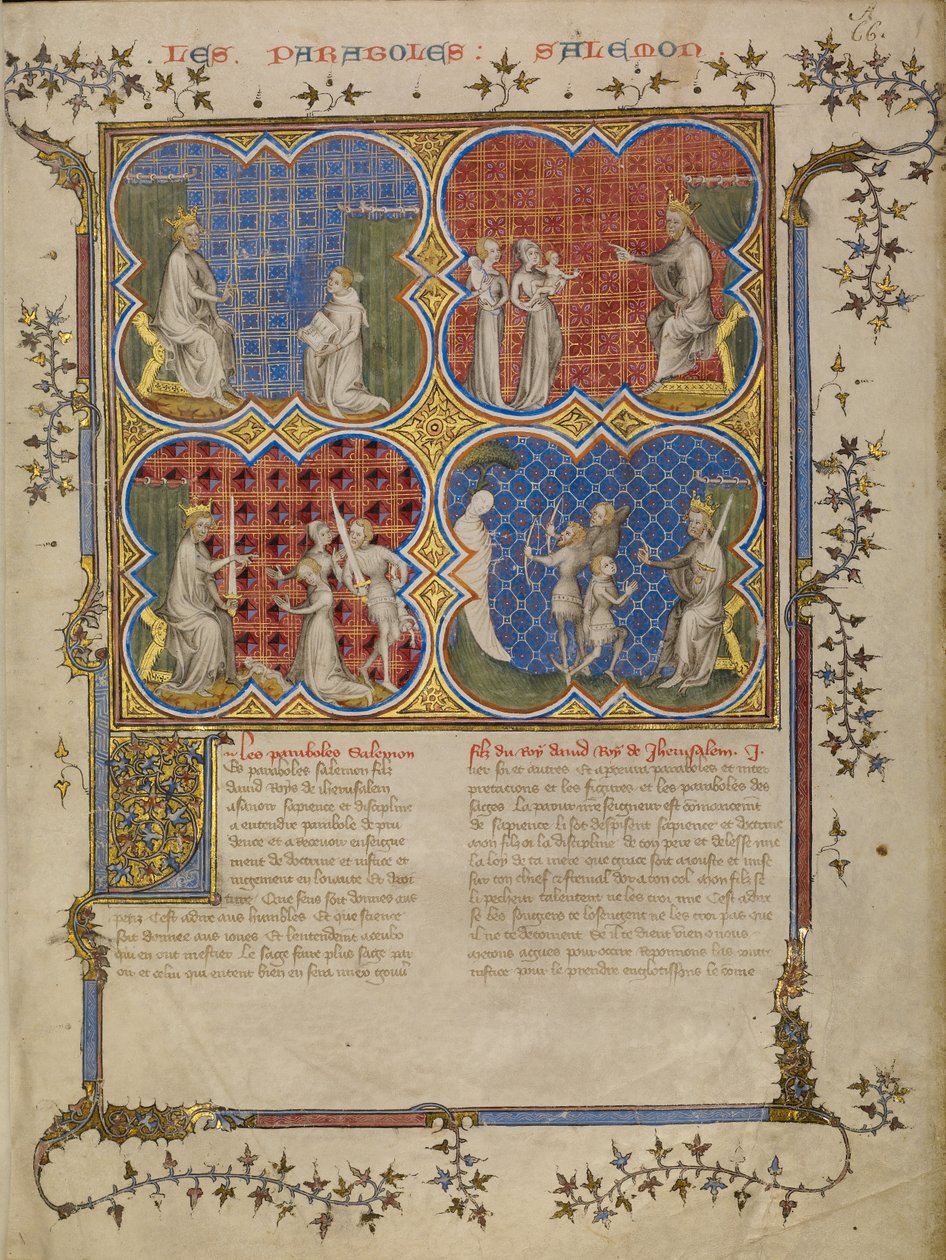 LES. PARABOLES: SALEMON.
66.
Les paraboles Salemon
Les paraboles salemon filz
david Roys de iherusalem
asavoir sapience et discipline
a entendre parabole de pru
dence et a recevoir enseigne
ment de doctrine et iustice et
iugement en loiaute Et droi
ture. Que sens soit donnes aus
petiz Cest adire aus humbles Et que science
soit donnee aus iones Et lentendemt aceulz
qui en ont mestier. Le sage sera plus sage par
oir et celui qui entent bien en sera
filz du Roy david Roy de Iherusalem. I.
et autres Et paraboles et inter
pretacions et les figures et les paraboles des
sages La paour nre seigneur est commencemt
de sapience li sot despisent sapience et doctrine
Mon filz oi la discipline de ton pere et delesse mie
la loy de ta mere que grace soit aiouste et mise
sur ton chief et fremal dor a ton col Mon filz se
li pecheur talentent ne les croi mie Cest adire
se les te losengent ne les croi pas que
il ne te decoivent Se il te dient vien o nous
metons agues pour occire Reponnons las
iustice pour le prendre englotissons le come